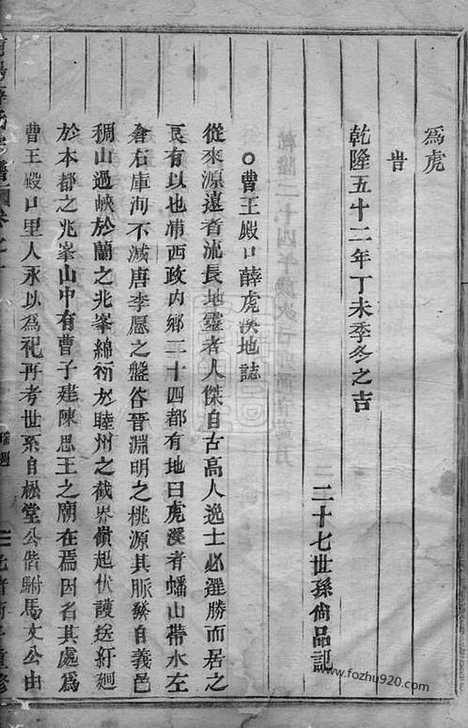 為虎
昔
乾隆五十二年丁未季冬之吉
二十七世孫尙品記
○曹王殿口薛虎溪地誌
從來源遠者流長地靈者人傑自古高人逸士必選勝而居之
良有以也浦西政內鄉二十四都有地曰虎溪者蟠山帶水左
倉右庫洵不滅唐李愿之盤谷晉淵明之桃源其脈發自義邑
稠山過峽於蘭之兆峯綿衍於睦州之截界嶺起伏護送紆廻
於本都之兆峯山中有曹子建陳思王之廟在焉因名其處為
曹王殿口里人永以為祀再考世系自松堂公偕駙馬文公由
www.fozhu920.com